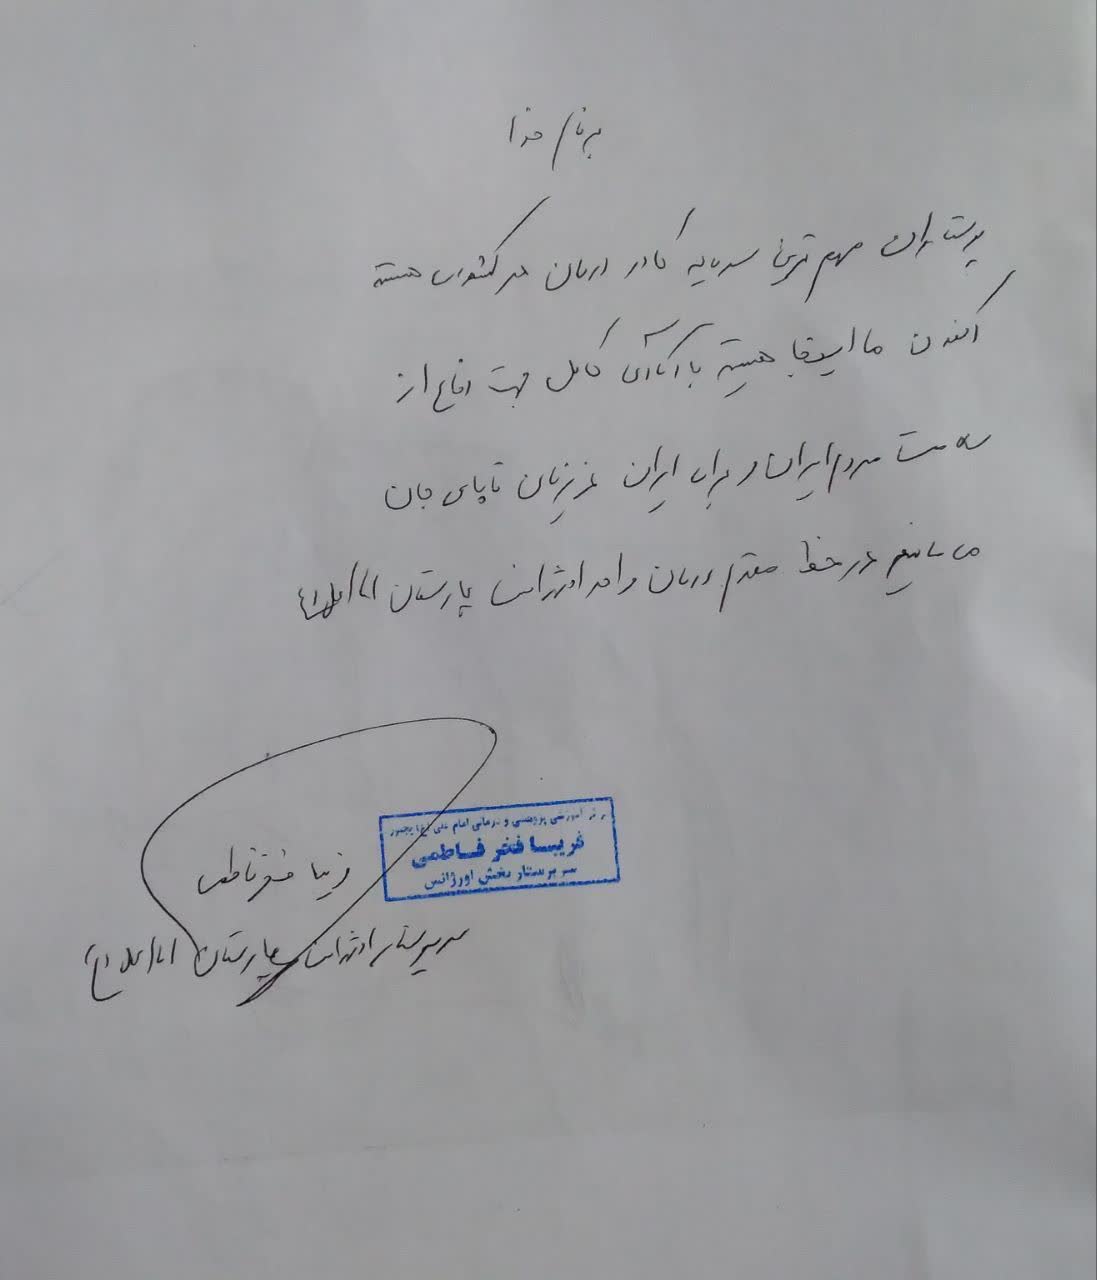 به نام خدا
پرستاران مهم ترین سرمایه کادر درمان هر کشوری هستند
اکنون ما اینجا هستیم با آمادگی کامل جهت دفاع از
سلامت مردم ایران و برای ایران عزیزمان تا پای جان
می مانیم در خط مقدم درمان واحد اورژانس بیمارستان امام علی (ع)
مرکز آموزشی پژوهشی و درمانی امام علی (ع) بجنورد
فریبا فخر فاطمی
سرپرستار بخش اورژانس
فریبا فخر فاطمی
سرپرستار اورژانس بیمارستان امام علی (ع)